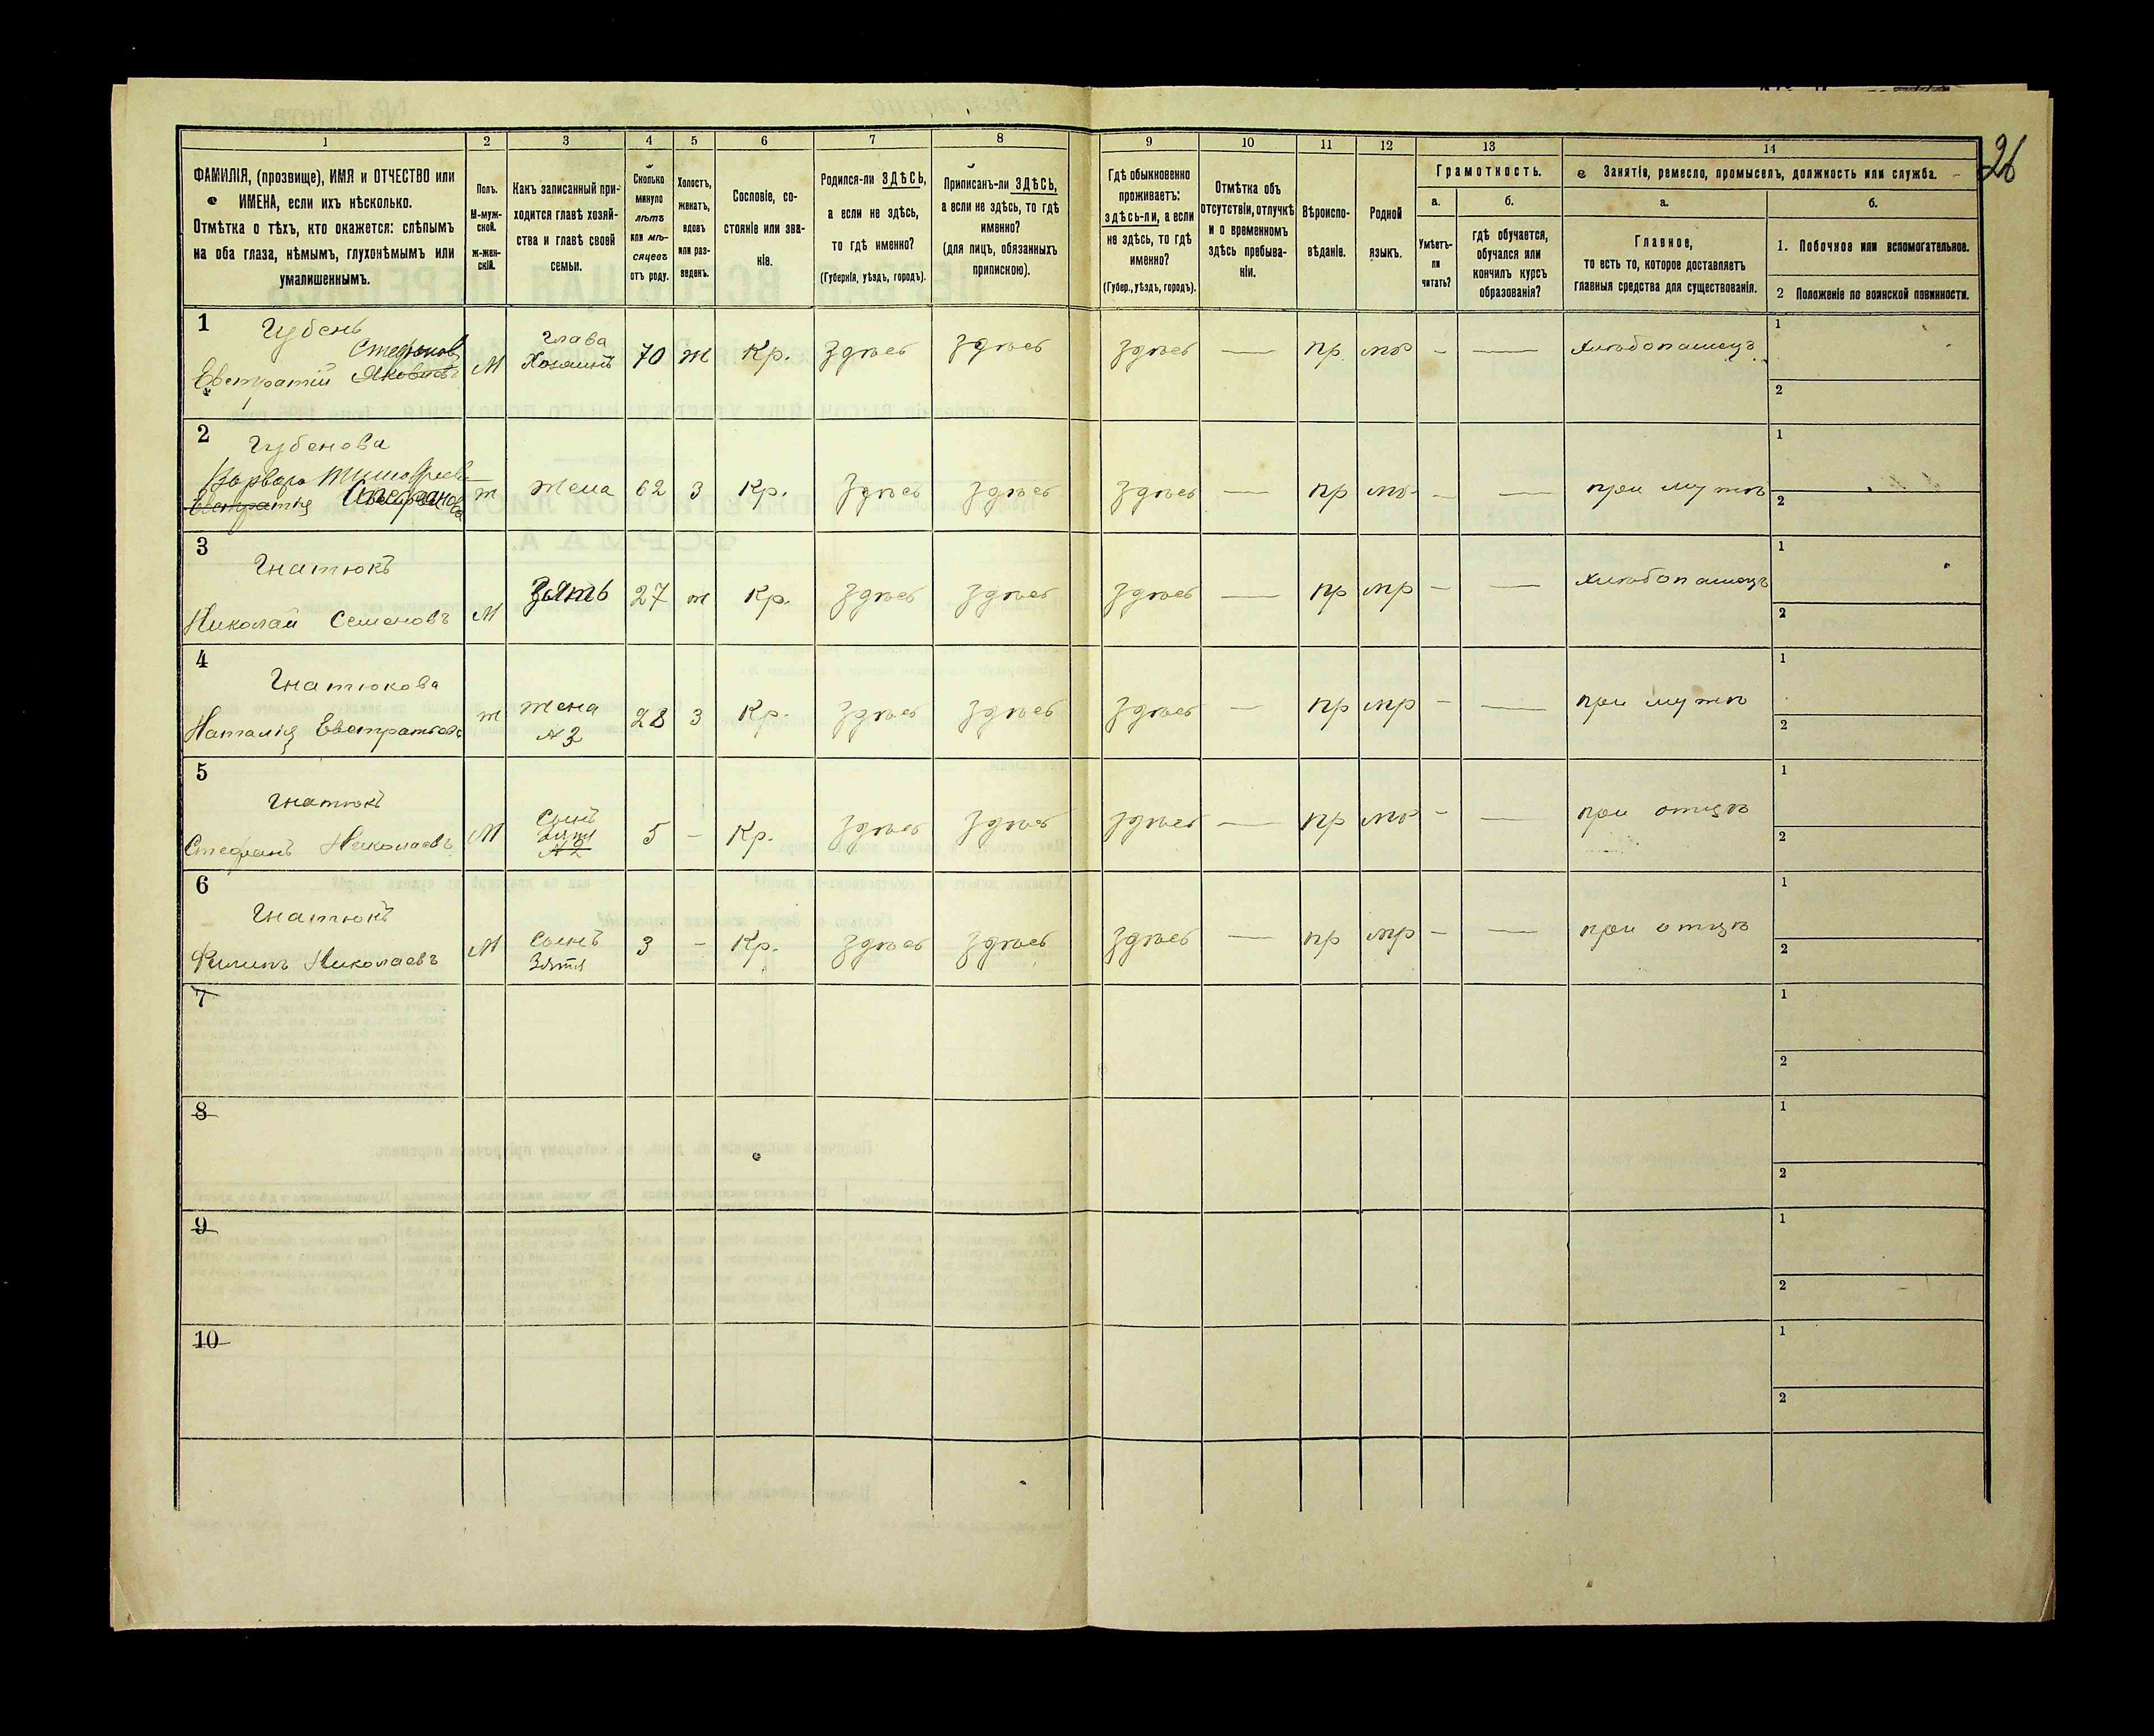 26
1 2 3 4 5 6 7 8 9 10 11 12 13 14
ФАМИЛІЯ, (прозвище), ИМЯ и ОТЧЕСТВО или
ИМЕНА, если ихъ нѣсколько.
Отмѣтка о тѣхъ, кто окажется: слѣпымъ
на оба глаза, нѣмымъ, глухонѣмымъ или
умалишеннымъ.
Полъ.
М-муж-
ской.
Ж-жен-
скій.
Какъ записанный при-
ходится главѣ хозяй-
ства и главѣ своей
семьи.
Сколько
минуло
лѣтъ
или мѣ-
сяцевъ
отъ роду.
Холостъ,
женатъ,
вдовъ
или раз-
веденъ.
Сословіе, со-
стояніе или зва-
ніе.
Родился-ли ЗДѢСЬ,
а если не здѣсь,
то гдѣ именно?
(Губернія, уѣздъ, городъ).
Приписанъ-ли ЗДѢСЬ,
а если не здѣсь, то гдѣ
именно?
(для лицъ, обязанныхъ
припискою).
Гдѣ обыкновенно
проживаетъ:
здѣсь-ли, а если
не здѣсь, то гдѣ
именно?
(Губер., уѣздъ, городъ).
Отмѣтка объ
отсутствіи, отлучкѣ
и о временномъ
здѣсь пребыва-
ніи.
Вѣроиспо-
вѣданіе.
Родной
языкъ.
Грамотность.
а.
Умѣетъ-
ли
читать?
б.
гдѣ обучается,
обучался или
кончилъ курсъ
образованія?
Занятіе, ремесло, промыселъ, должность или служба.
а.
Главное,
то есть то, которое доставляетъ
главныя средства для существованія.
б.
1. Побочное или вспомогательное.
2 Положеніе по воинской повинности.
1
Губень
Стефановъ
Евстратій Яковлевъ
М
Глава
Хозяинъ
70 ж Кр. здѣсь здѣсь здѣсь — пр мр - — хлѣбопашецъ
1
2
2
Губенова
Варвара Тимофеева
Евстратія Стефанова
ж жена 62 З Кр. здѣсь здѣсь здѣсь — пр мр - — при мужѣ
1
2
3
Гнатюкъ
Николай Семеновъ
М Зять 27 ж Кр. здѣсь здѣсь здѣсь — пр мр - — хлѣбопашецъ
1
2
4
Гнатюкова
Наталія Евстратьева
ж
жена
№ 3
28 З Кр. здѣсь здѣсь здѣсь — пр мр - — при мужѣ
1
2
5
Гнатюкъ
Стефанъ Николаевъ
М
Сынъ
Зятя
5 - Кр. здѣсь здѣсь здѣсь — пр мр - — при отцѣ
1
2
6
Гнатюкъ
Филипъ Николаевъ
М
Сынъ
Зятя
3 - Кр. здѣсь здѣсь здѣсь — пр мр - — при отцѣ
1
2
7
1
2
8
1
2
9
1
2
10
1
2